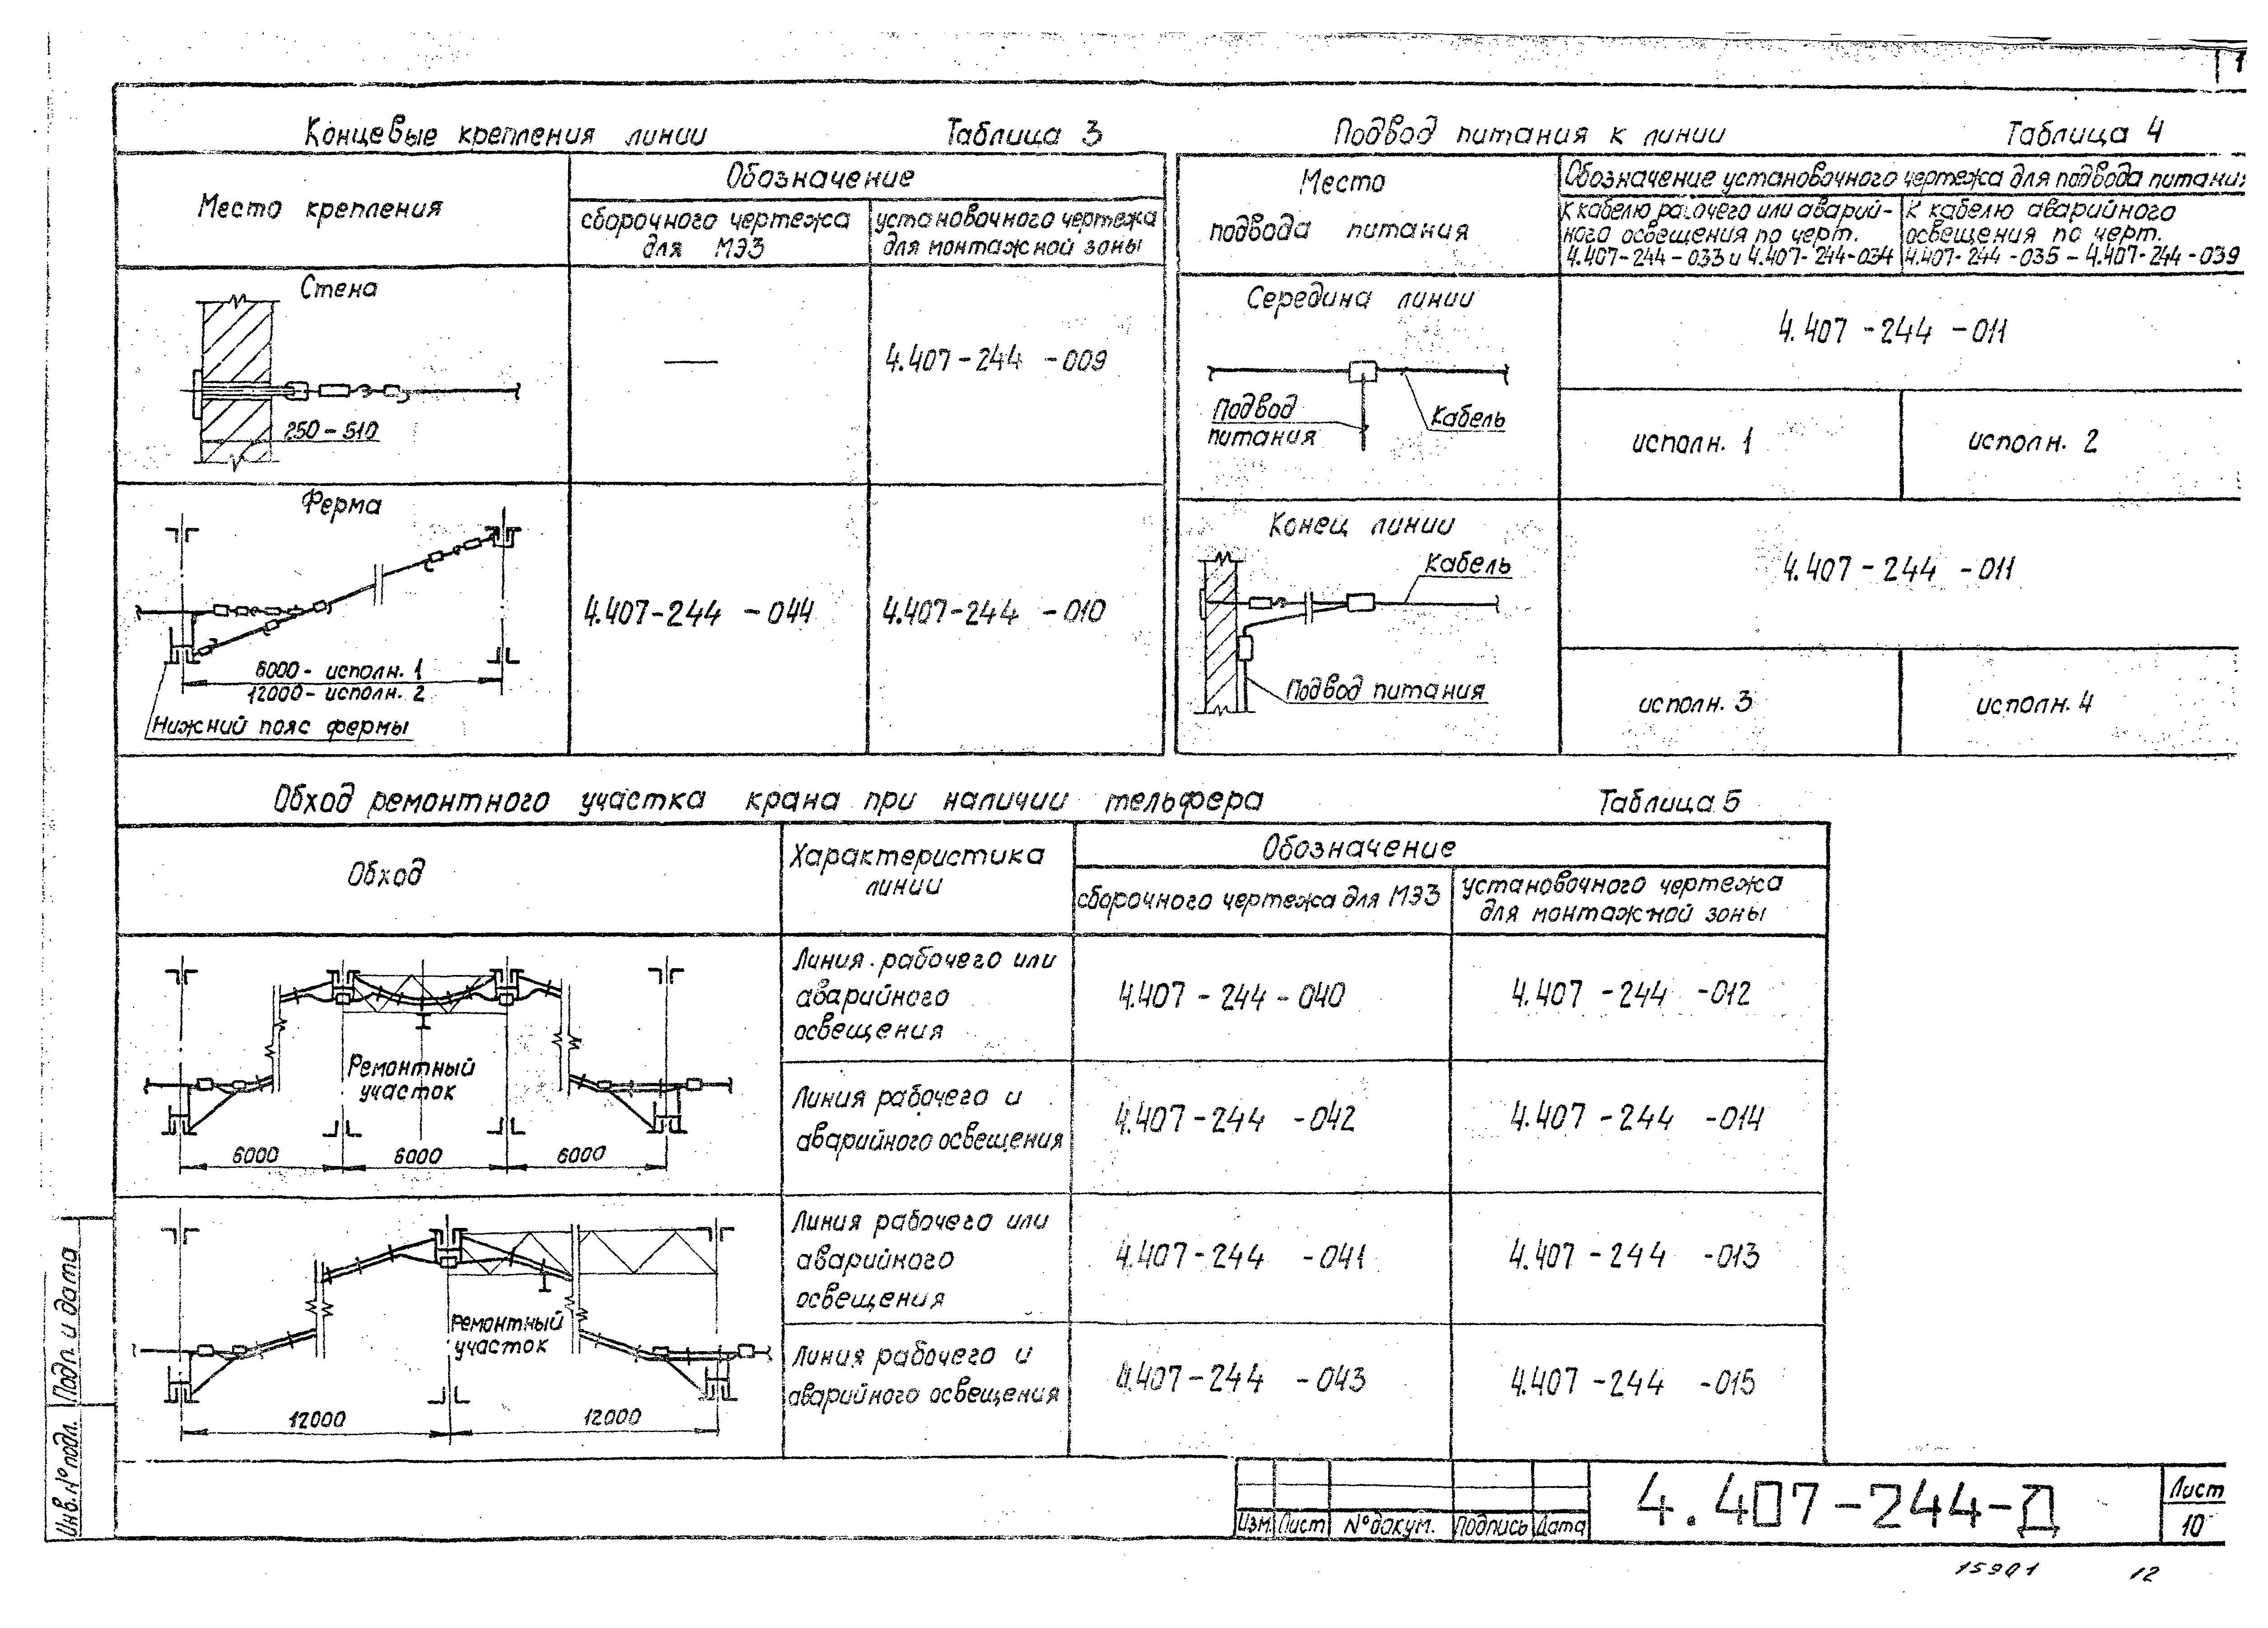 1
Концевые крепления линии Таблица 3
Место крепления
Обозначение
сборочного чертежа
для МЭЗ
установочного чертежа
для монтажной зоны
Стена
250 - 510
—
4.407 - 244 - 009
Ферма
6000 - исполн. 1
12000 - исполн. 2
Нижний пояс фермы
4.407-244 - 044
4.407-244 - 010
Подвод питания к линии Таблица 4
Место
подвода питания
Обозначение установочного чертежа для подвода питания
К кабелю рабочего или аварий-
ного освещения по черт.
4.407-244-033 и 4.407-244-034
К кабелю аварийного
освещения по черт.
4.407-244-035 - 4.407-244-039
Середина линии
Подвод
питания
Кабель
4.407 - 244 - 011
исполн. 1
исполн. 2
Конец линии
Кабель
Подвод питания
4.407 - 244 - 011
исполн. 3
исполн. 4
Обход ремонтного участка крана при наличии тельфера Таблица 5
Обход
Характеристика
линии
Обозначение
сборочного чертежа для МЭЗ
установочного чертежа
для монтажной зоны
Ремонтный
участок
6000 6000 6000
Линия рабочего или
аварийного
освещения
4.407 - 244 - 040
4.407 - 244 - 012
Линия рабочего и
аварийного освещения
4.407 - 244 - 042
4.407 - 244 - 014
Ремонтный
участок
12000 12000
Линия рабочего или
аварийного
освещения
4.407 - 244 - 041
4.407 - 244 - 013
Линия рабочего и
аварийного освещения
4.407 - 244 - 043
4.407 - 244 - 015
Инв. № подл. Подп. и дата
Изм. Лист № докум. Подпись Дата
4.407-244-Д
Лист
10
15901 12